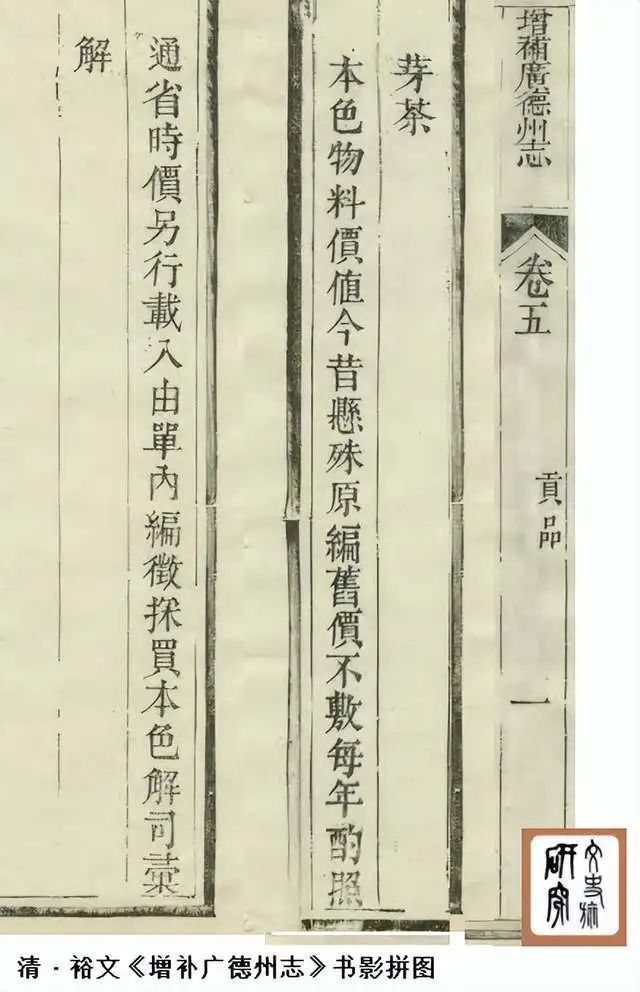 增補廣德州志
卷五
貢品
一
芽茶
本色物料價值今昔懸殊原編舊價不敷每年酌照
通省時價另行載入由單內編徵採買本色解司彙
解
文史
研究
清·裕文《增补广德州志》书影拼图